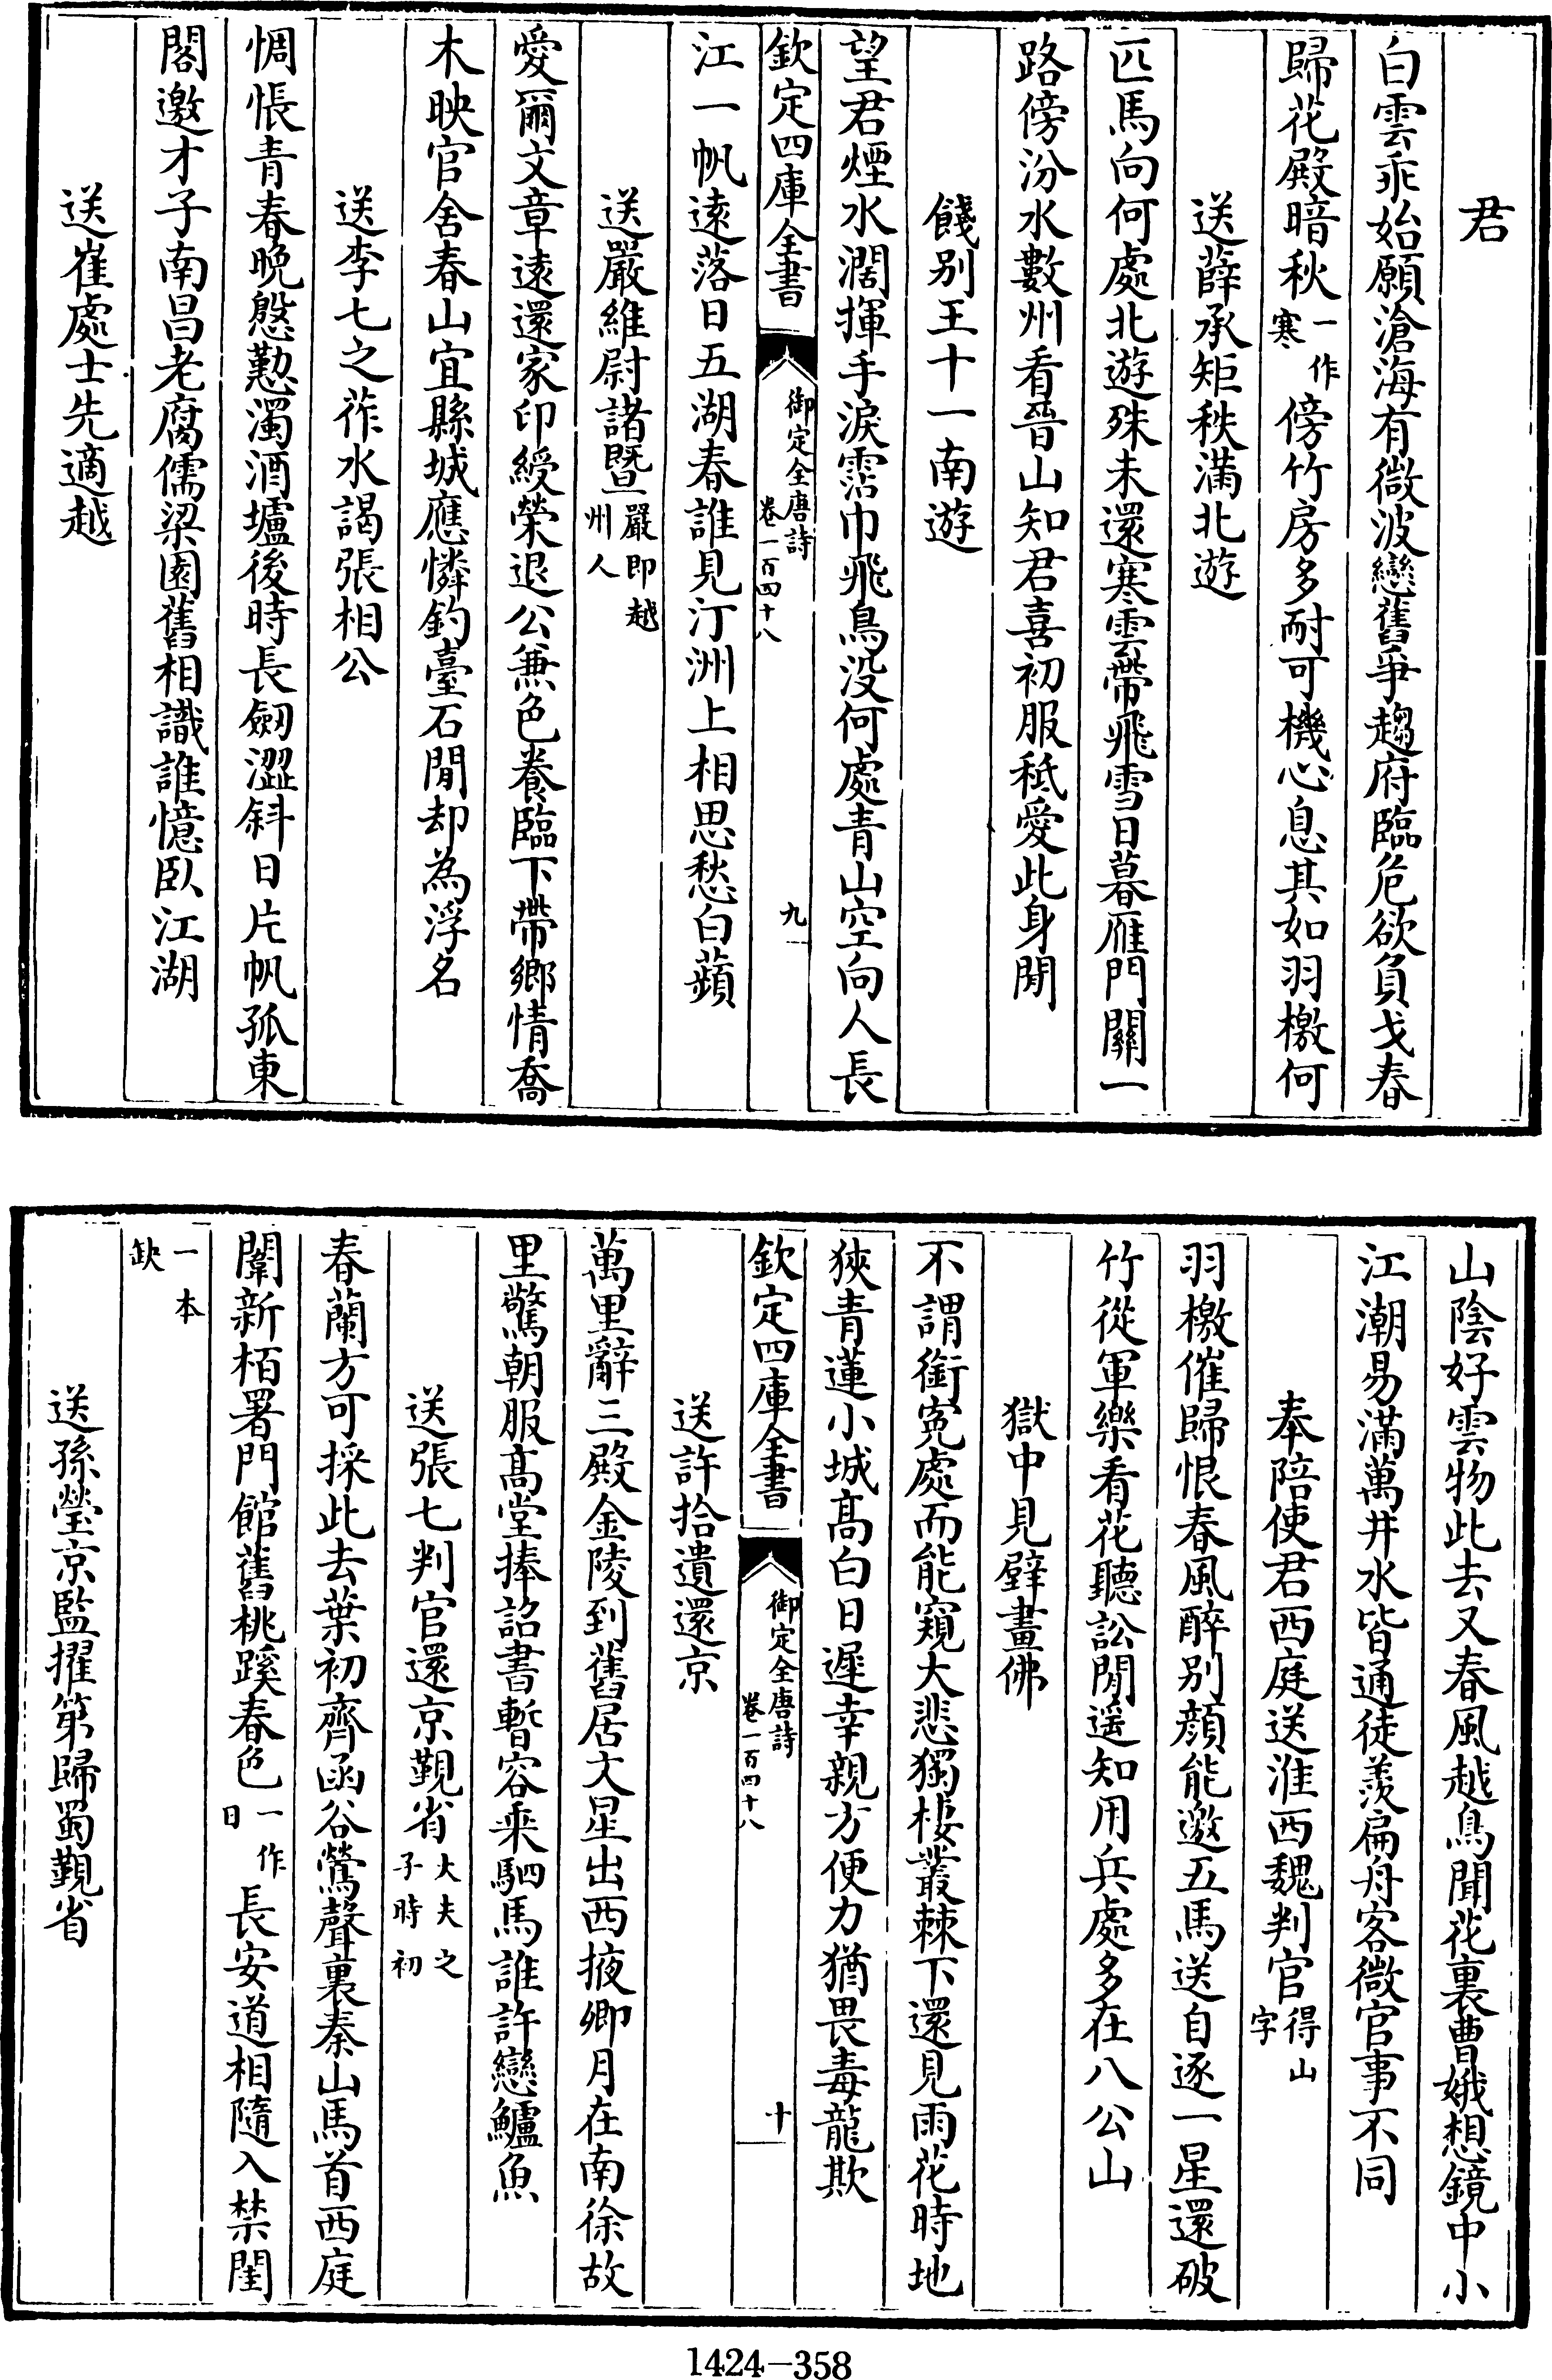 君
白雲乖始願滄海有微波戀舊爭趨府臨危欲負戈春
歸花殿暗秋一作寒傍竹房多耐可機心息其如羽檄何
送薛承矩秩滿北遊
匹馬向何處北遊殊未還寒雲帶飛雪日暮雁門關一
路傍汾水數州看晉山知君喜初服秪愛此身閒
餞别王十一南遊
望君煙水濶揮手淚霑巾飛鳥没何處青山空向人長
欽定四庫全書
御定全唐詩
卷一百四十八
九
江一帆遠落日五湖春誰見汀洲上相思愁白蘋
送嚴維尉諸暨嚴即越州人
愛爾文章遠還家印綬榮退公兼色養臨下帶鄉情喬
木映官舍春山宜縣城應憐釣臺石閒却為浮名
送李七之莋水謁張相公
惆悵青春晚慇懃濁酒壚後時長劒澀斜日片帆孤東
閣邀才子南昌老腐儒梁園舊相識誰憶臥江湖
送崔處士先適越
山陰好雲物此去又春風越鳥聞花裏曹娥想鏡中小
江潮易滿萬井水皆通徒羨扁舟客微官事不同
奉陪使君西庭送淮西魏判官得山字
羽檄催歸恨春風醉别顔能邀五馬送自逐一星還破
竹從軍樂看花聽訟閒遥知用兵處多在八公山
獄中見壁畫佛
不謂銜寃處而能窺大悲獨棲叢棘下還見雨花時地
狹青蓮小城高白日遲幸親方便力猶畏毒龍欺
欽定四庫全書
御定全唐詩
卷一百四十八
十
送許拾遺還京
萬里辭三殿金陵到舊居文星出西掖卿月在南徐故
里驚朝服高堂捧詔書暫容乘駟馬誰許戀鱸魚
送張七判官還京覲省大夫之子時初
春蘭方可採此去葉初齊函谷鶯聲裏秦山馬首西庭
闈新栢署門館舊桃蹊春色一作日長安道相隨入禁閨
一本缺
送孫瑩京監擢第歸蜀覲省
1424-358